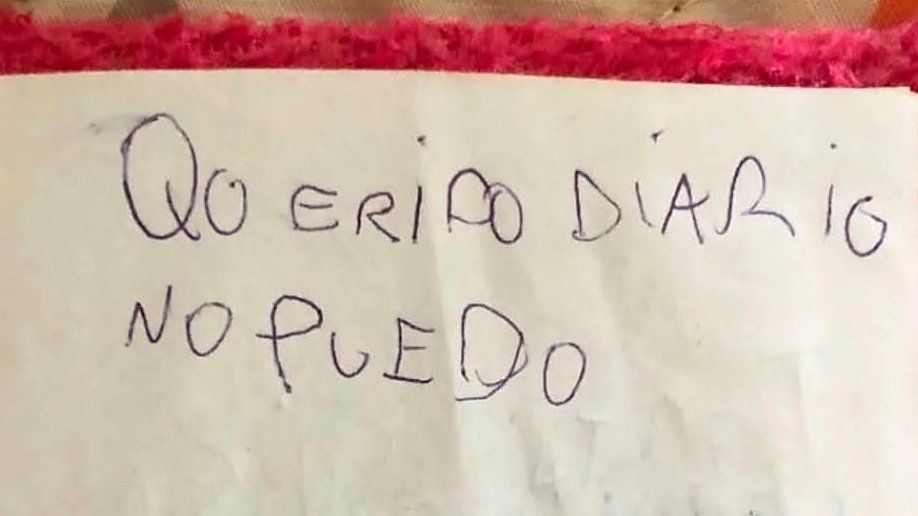 QOERIDO DIARIO
NO PUEDO